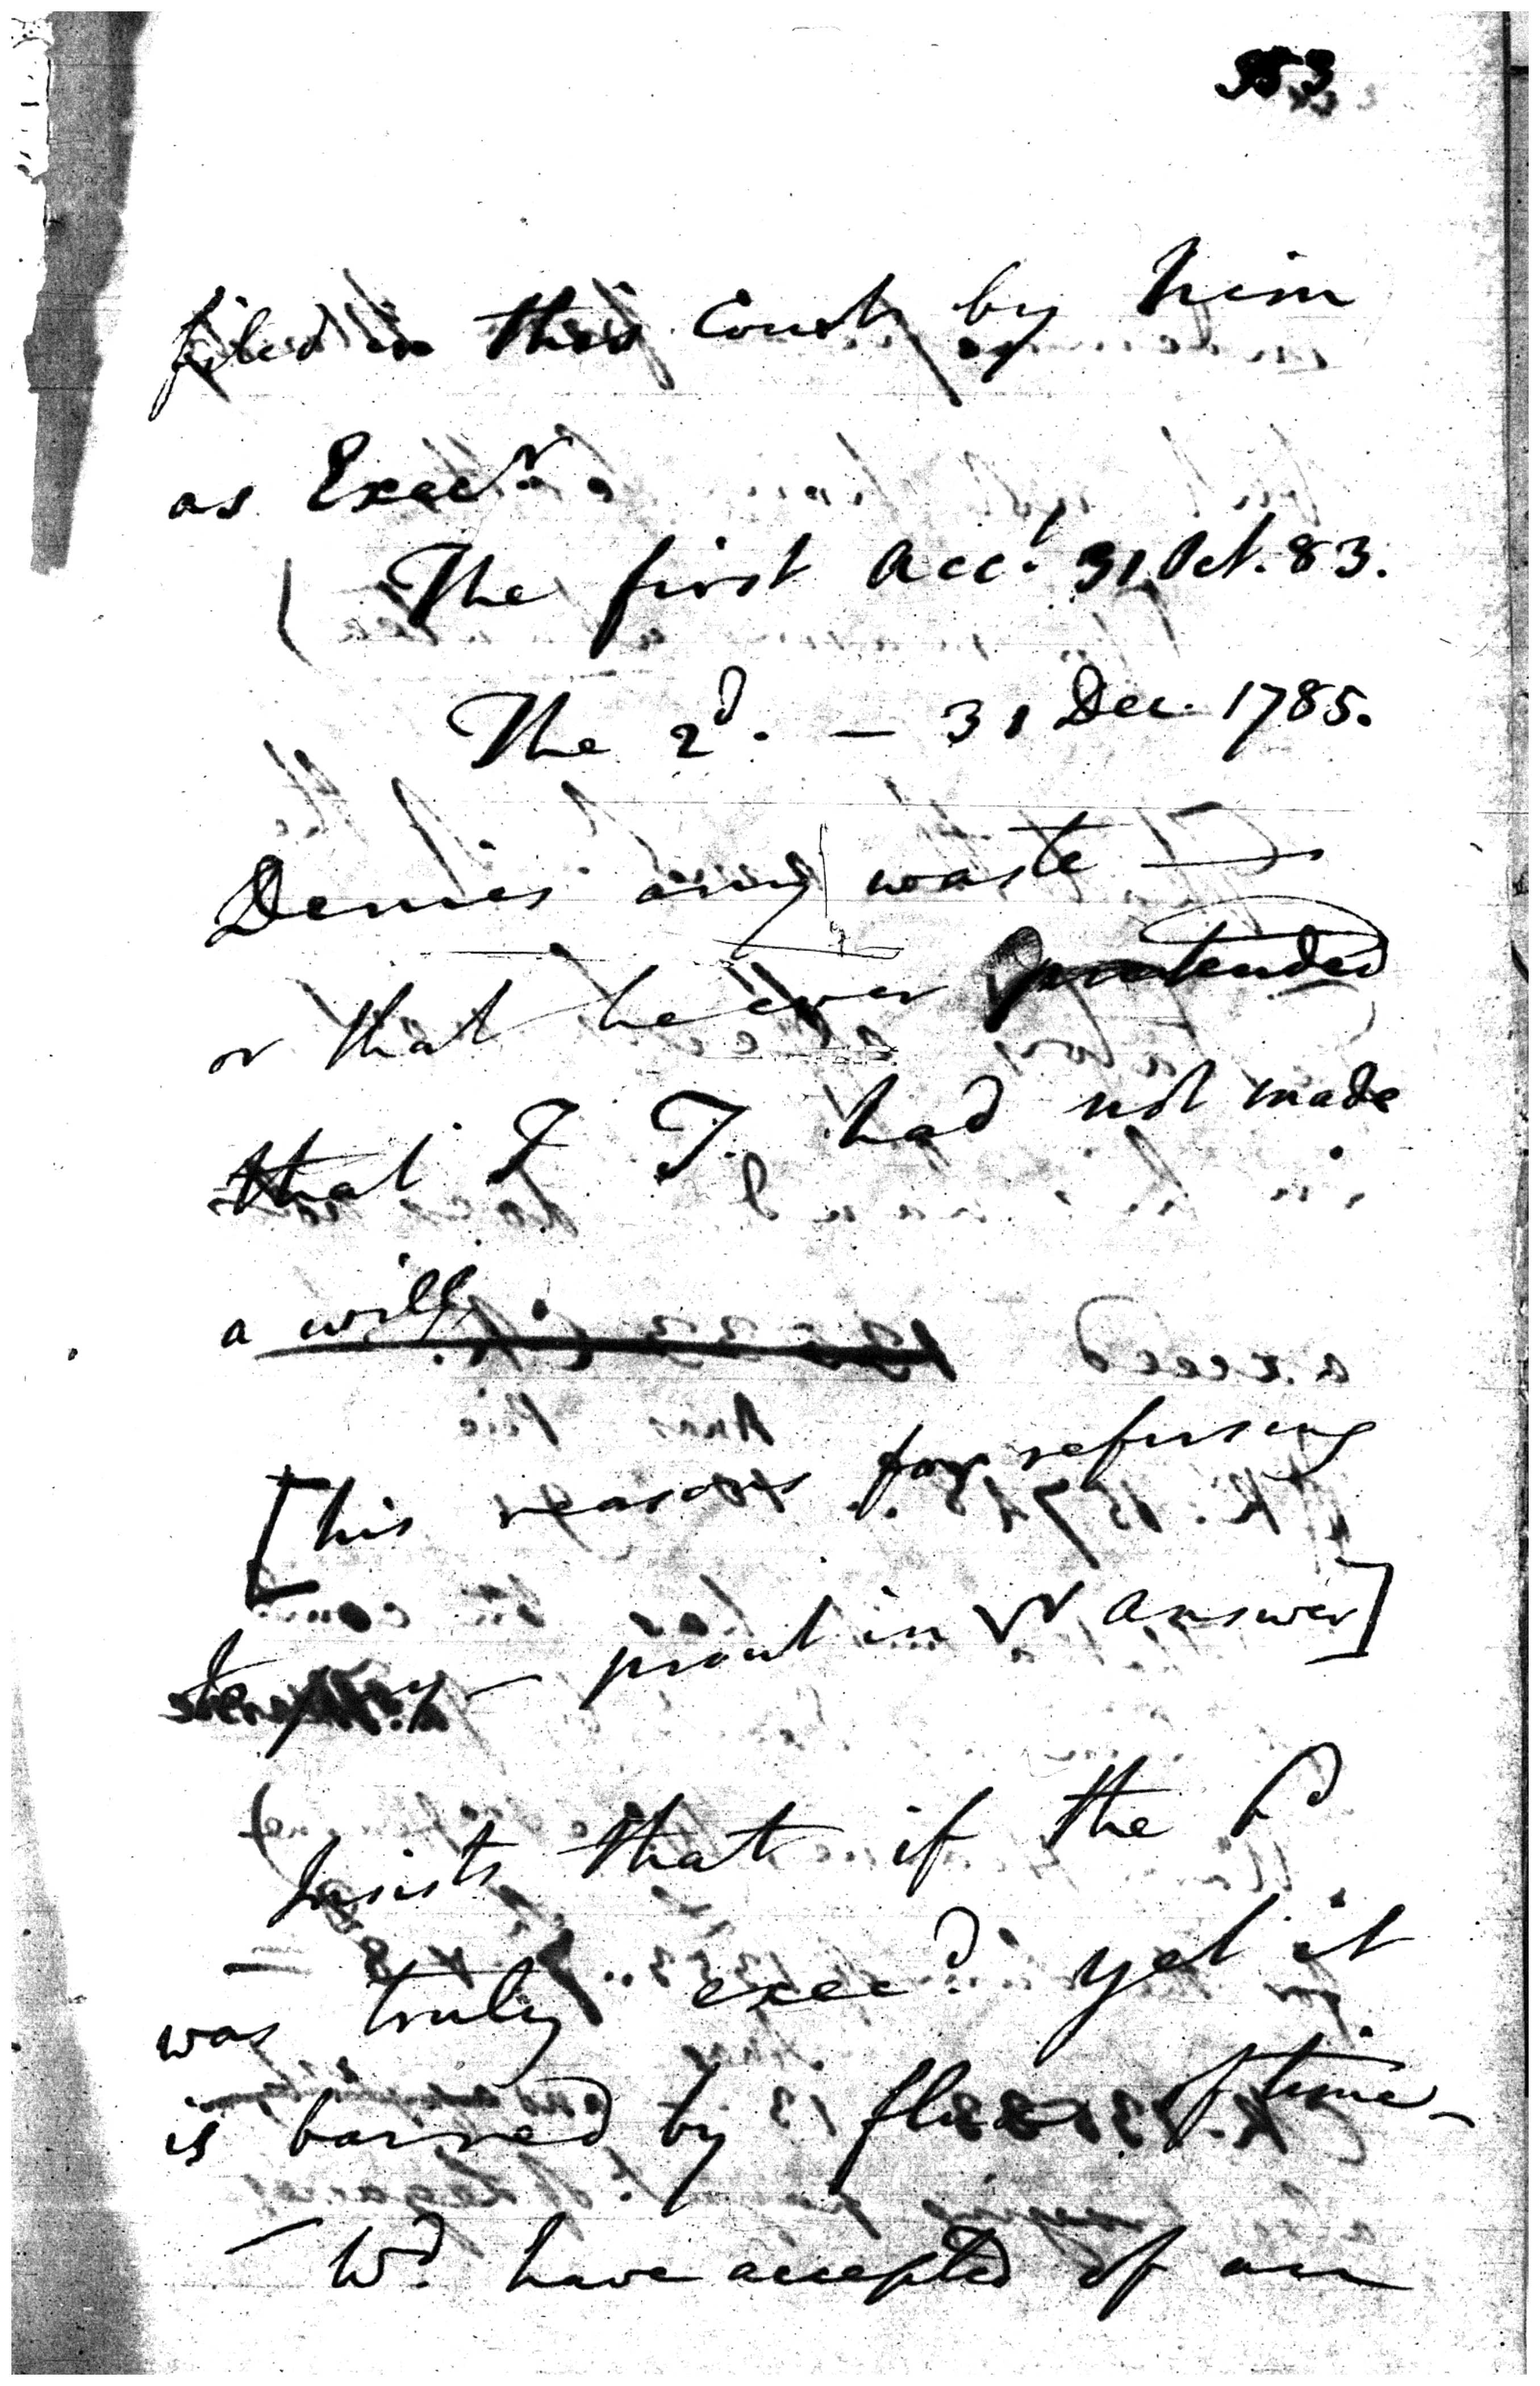 353
filed in this Court by him
as Execr.
The first Acct. 31 Oct. 83.
The 2d. — 31 Dec. 1785.
Denies any waste —
or that he ever pretended
that J T. had not made
a will
[his reasons for refusing
to pay — prout in Answer]
Insists that if the Bd
was truly execd. yet it
is barred by flux of time —
— Wd. have accepted of an